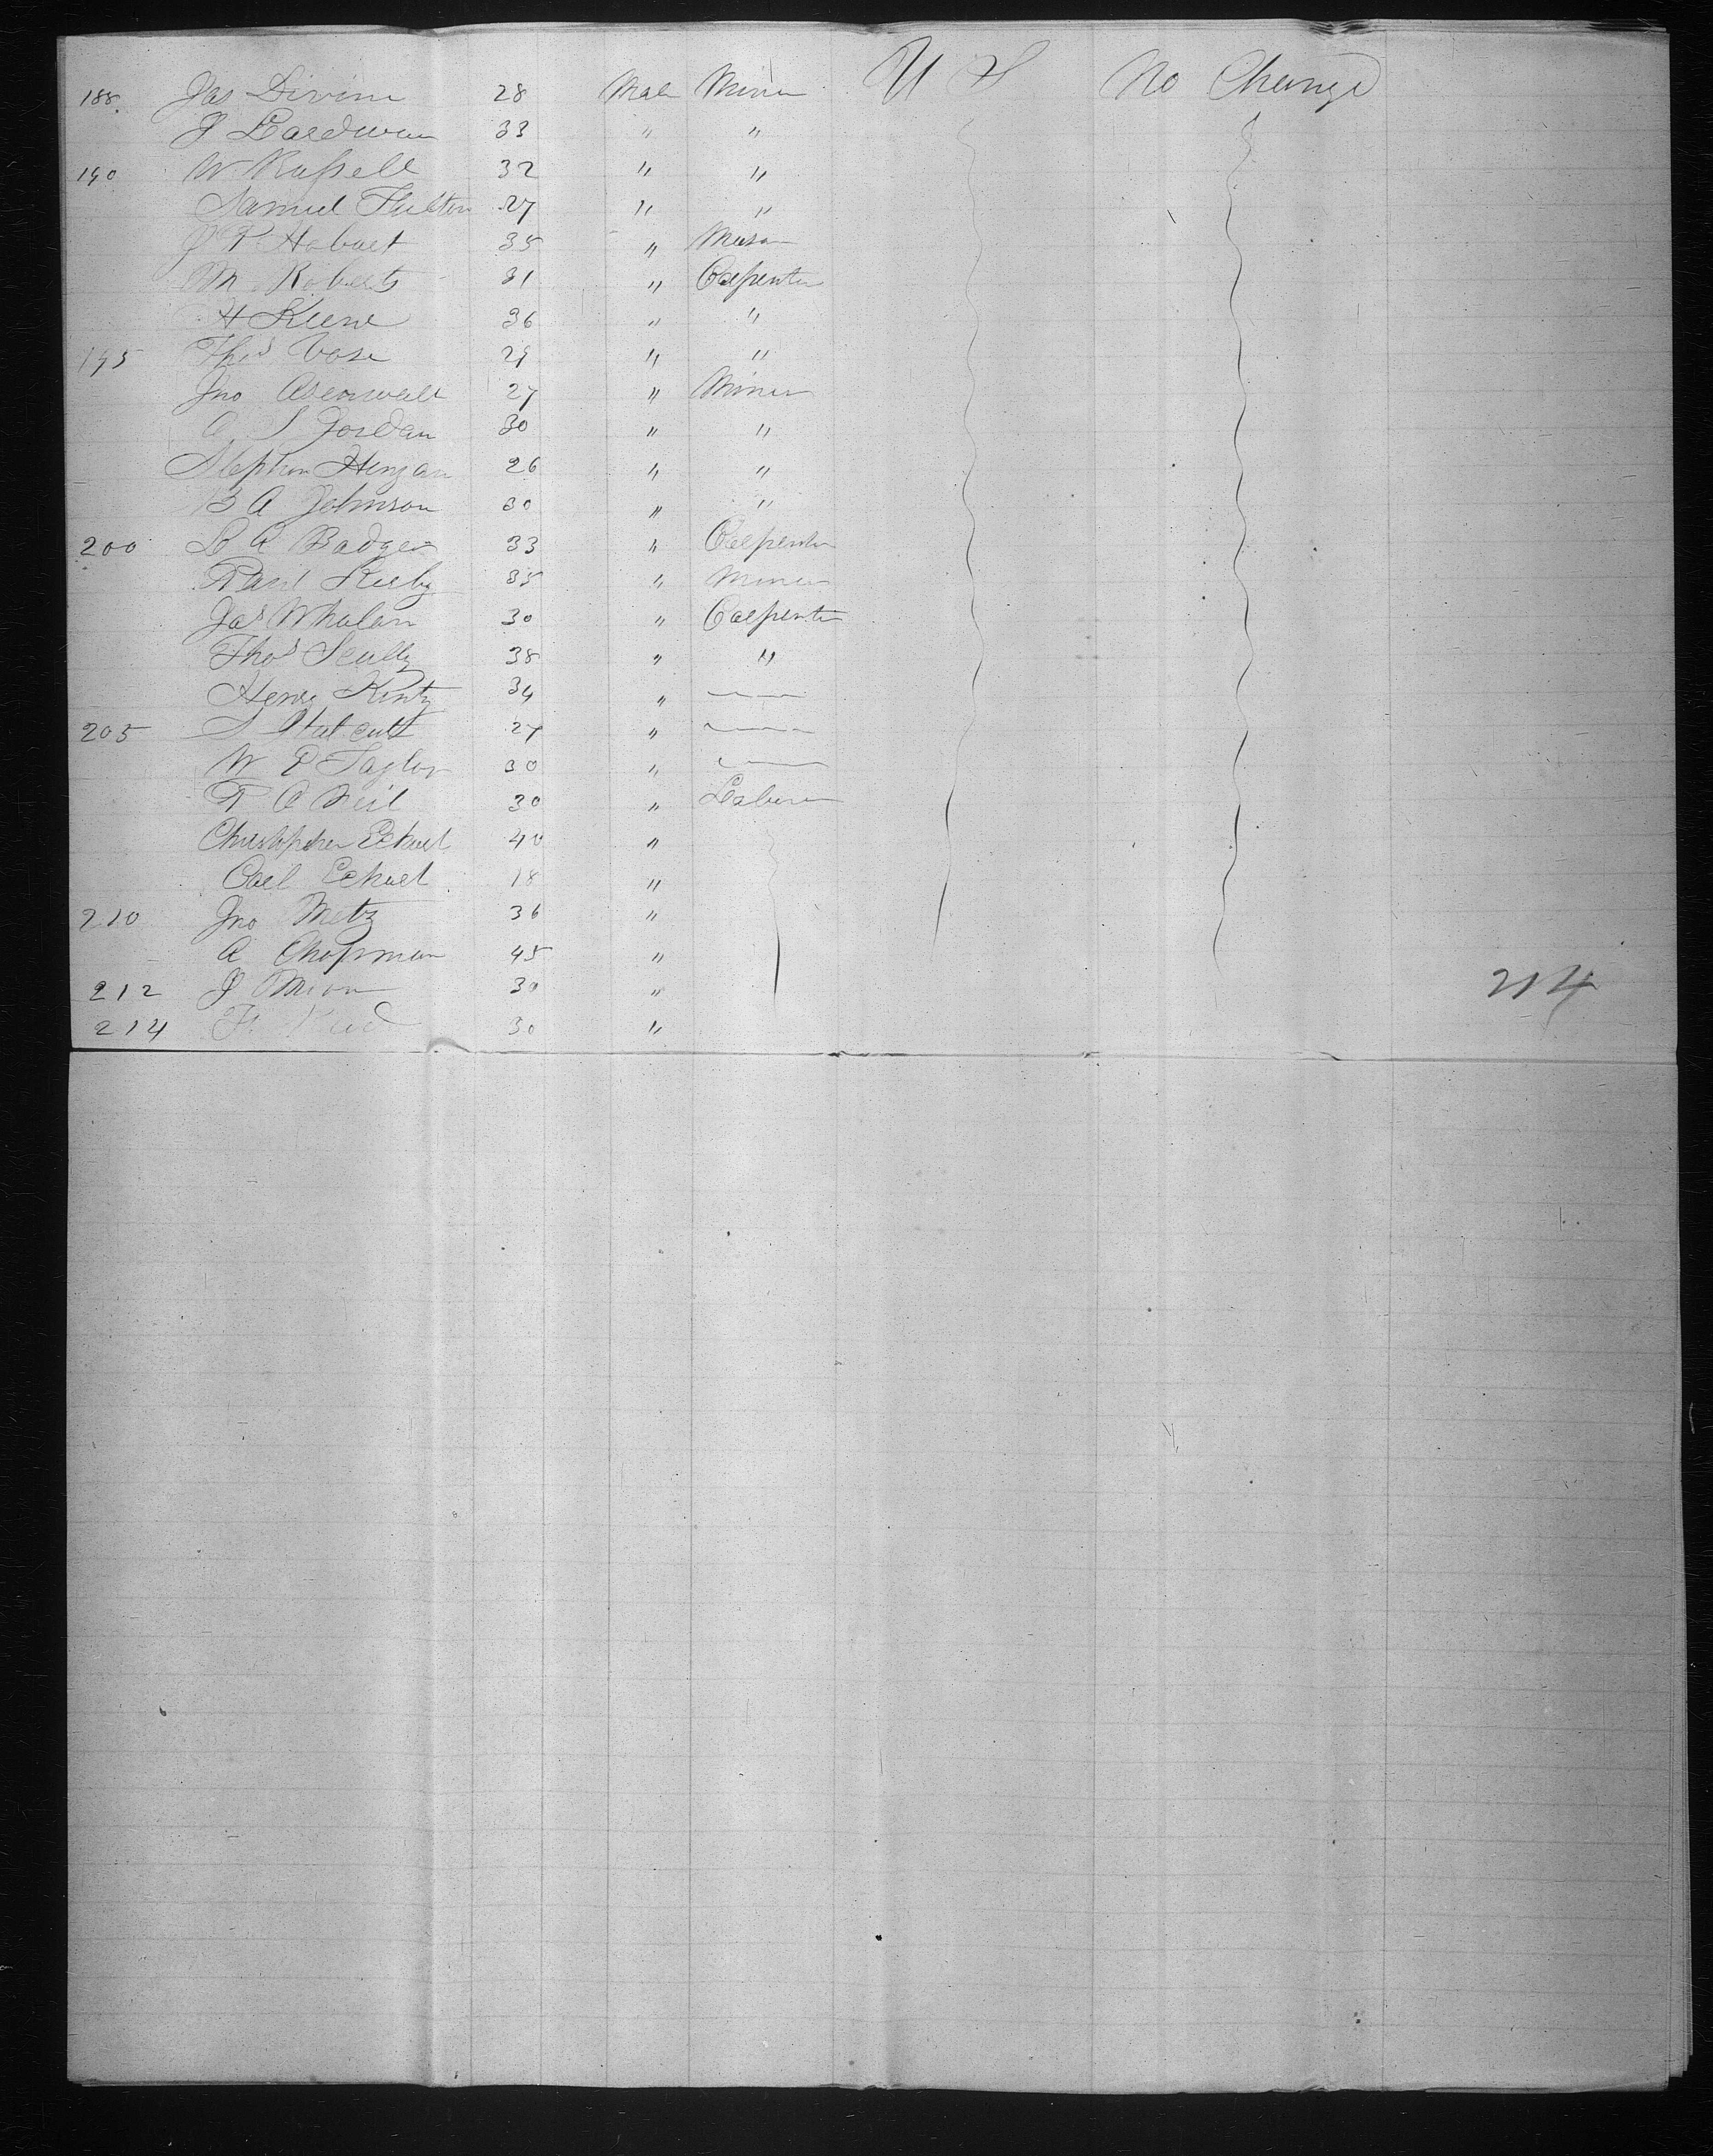 188. Jas Divine 28 Male Miner U S No Change
J Boardman 33 " "
190 W Russell 32 " "
Samuel Fulton 27 " "
J T Hobart 35 " Mason
M Roberts 31 " Carpenter
H Keene 36 " "
195 Thos Vose 29 " "
Jno 27 " Miner
A S Jordan 30 " "
Stephen 26 " "
B A Johnson 30 " "
200 A Badger 33 " Carpenter
Kirby 35 " Miner
Jas Whalan 30 " Carpenter
Thos Scully 38 " "
Henry Kintz 34 "
205 S 27 "
W P Taylor 30 "
T O Neil 30 " Laborer
Christopher Eckart 40 "
Carl Eckart 18 "
210 Jno Metz 36 "
A Chapman 45 "
212 J 30 " 214
214 30 "